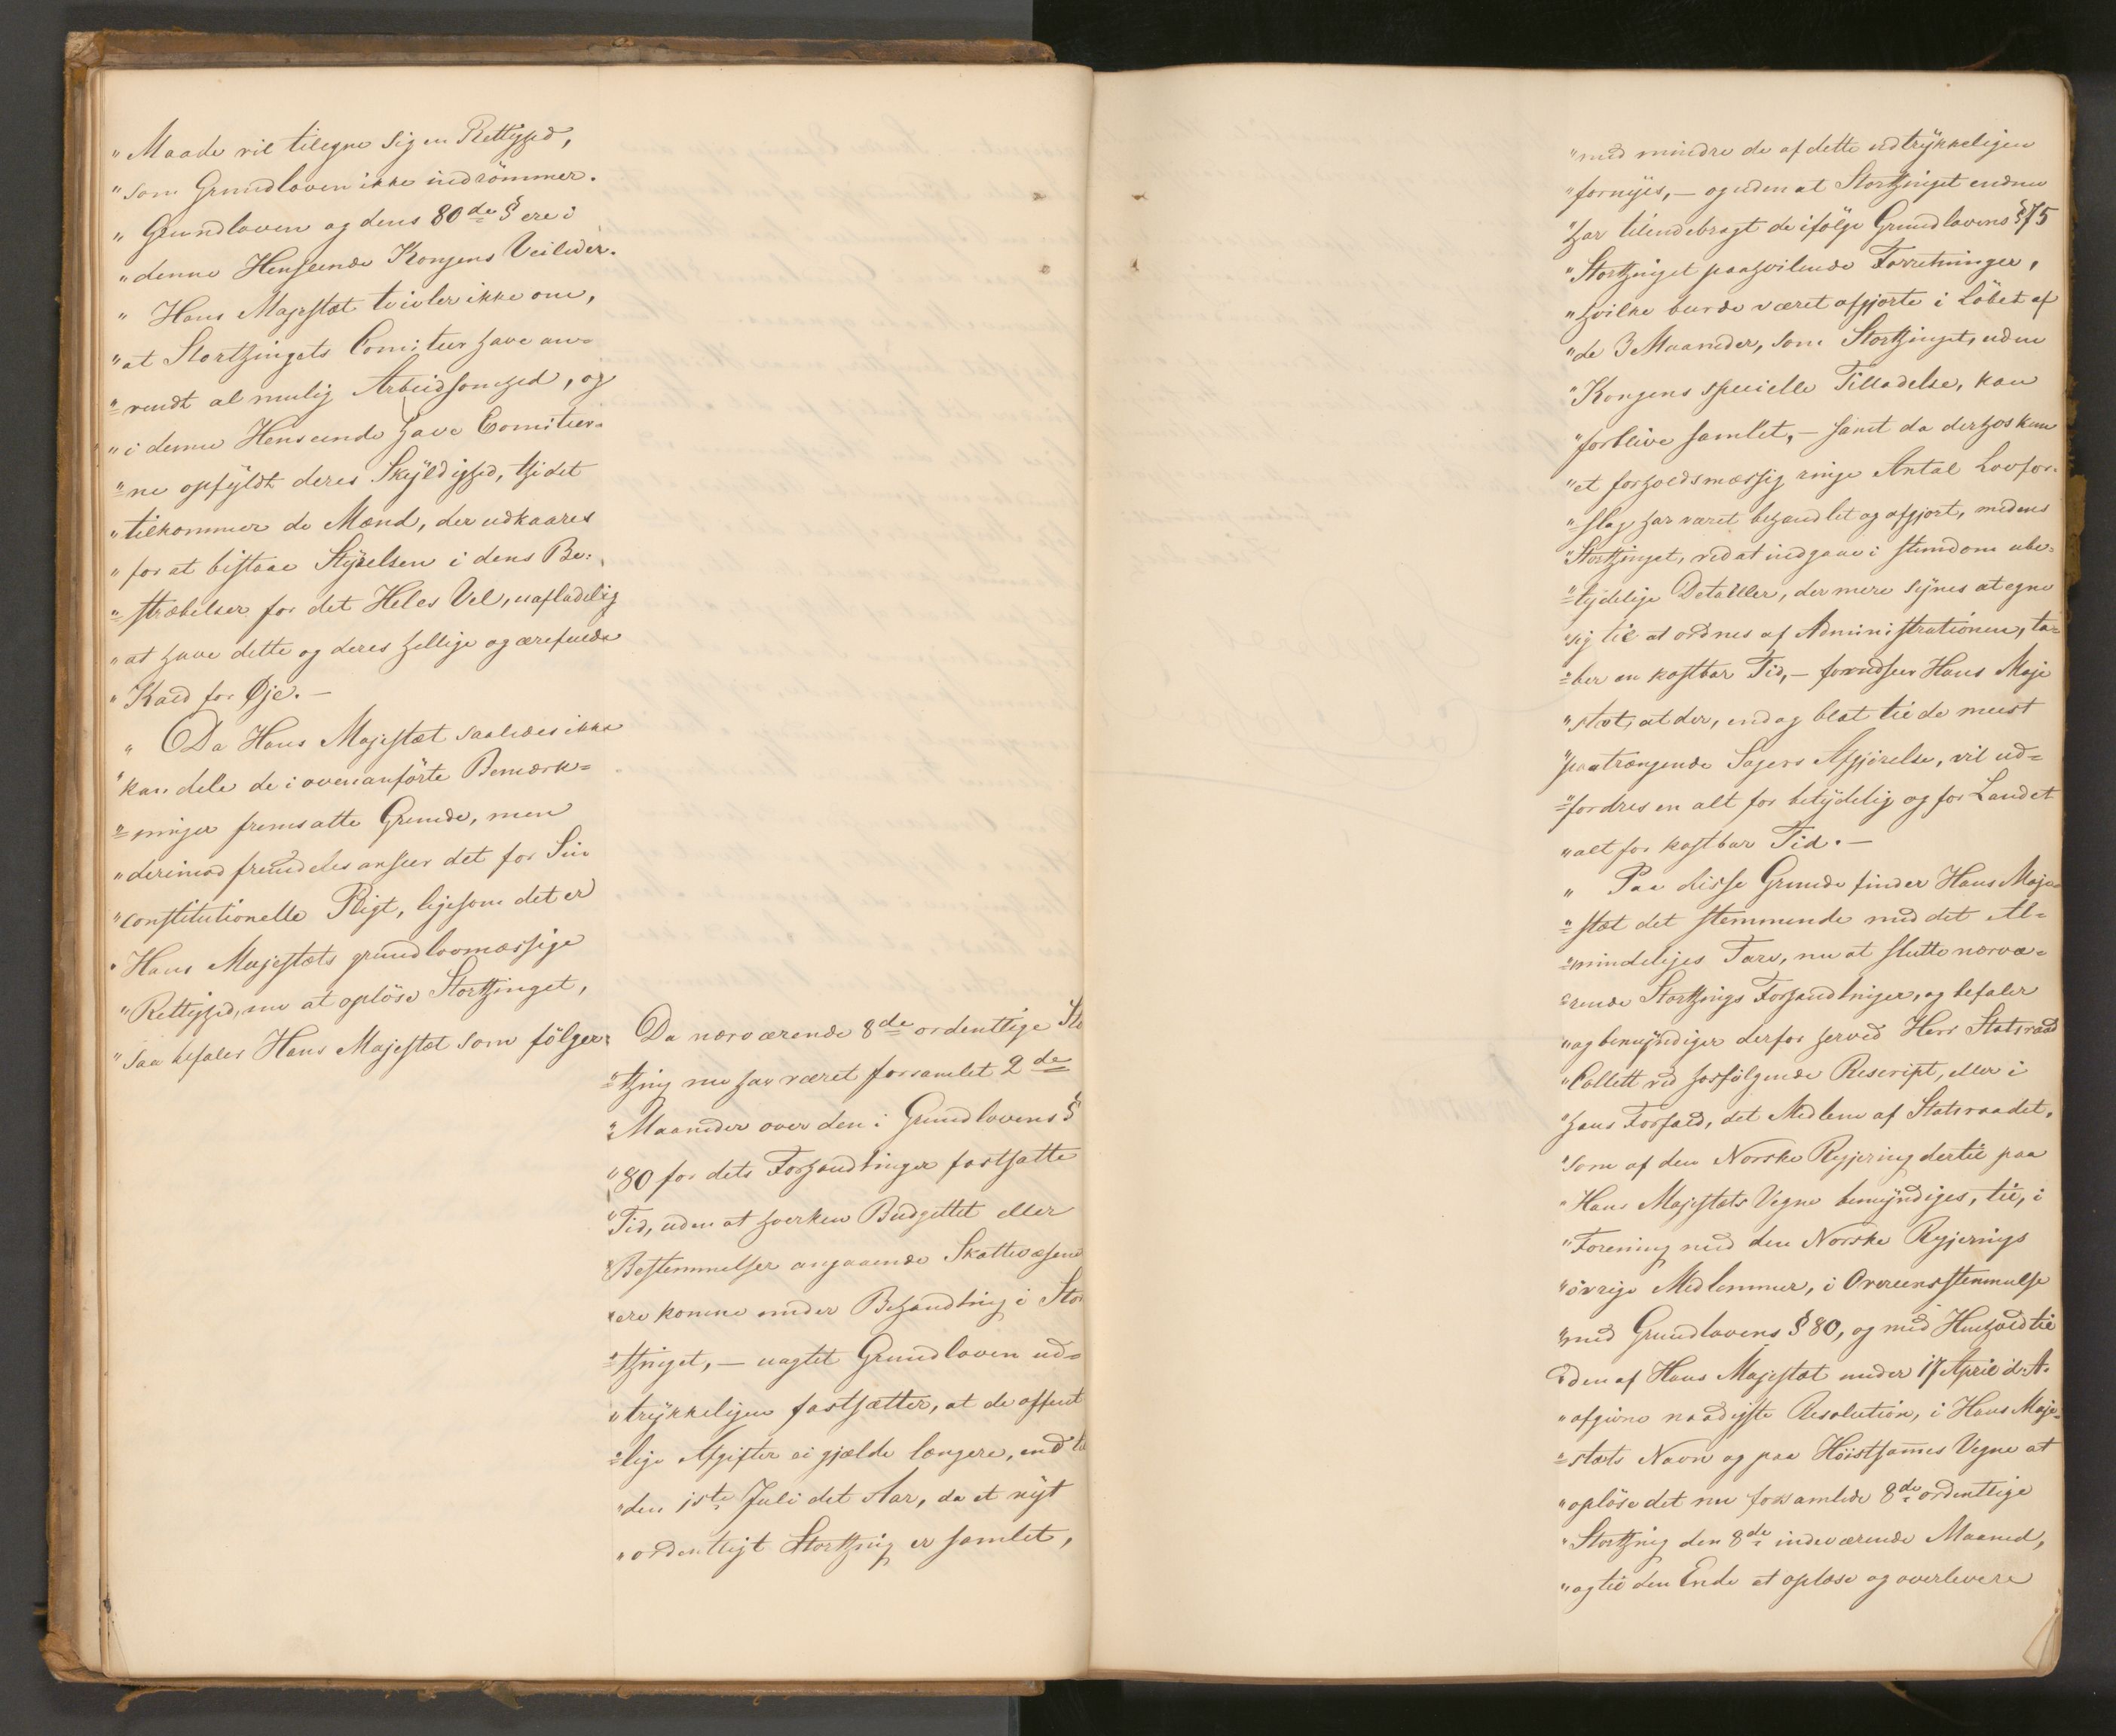 "Maade vil tilegne sig en Rettighed,
"som Grundloven ikke indrömmer.
"Grundloven og dens 80de § ere i
"denne Henseende Kongens Veileder.
"Hans Majestæt tvivler ikke om,
"at Storthingets Comiteer have an=
"=vendt al mulig Arbeidsomhed, og
"i denne Henseende have Comiteer=
"=ne opfyldt deres Skyldighed, thi det
"tilkommer de Mænd, der udkaares
"for at bistaae Styrelsen i dens Be=
"=stræbelser for det Heles Vel, uafladelig
"at have dette og deres hellige og ærefulde
"Kald for Øje.—
"Da Hans Majestæt saaledes ikke
"kan dele de i ovenanförte Bemærk=
"=ninger fremsatte Grunde, men
"derimod fremdeles anseer det for Sin
"constitutionelle Pligt, ligesom det er
"Hans Majestæts grundlovmæssige
"Rettighed, nu at oplöse Storthinget,
"saa befaler Hans Majestæt som fölger:
Da nærværende 8de ordentlige Sto
"=thing nu har været forsamlet 2de
"Maaneder over den i Grundlovens §
"80 for dets Forhandlinger fastsatte
"Tid, uden at hverken Budgettet eller
"Bestemmelser angaaende Skattevæsene
"ere komne under Behandling i Stor
"=thinget,— uagtet Grundloven ud=
"trykkeligen fastsætter, at de offent
"=lige Afgifter ei gjælde længere, end til
"den 1ste Juli det Aar, da et nyt
"ordentligt Storthing er samlet,
"med mindre de af dette udtrykkeligen
"fornyes,— og uden at Storthinget endnu
"har tilendebragt de ifölge Grundlovens § 75
"Storthinget paahvilende Forretninger,
"hvilke burde været afgjorte i Löbet af
"de 3 Maaneder, som Storthinget, uden
"Kongens specielle Tilladelse, kan
"forblive samlet,— samt da derhos kun
"et forholdsmæssig ringe Antal Lovfor=
"=slag har været behandlet og afgjort, medens
"Storthinget, ved at indgaae i stundom ube=
"=tydelige Detailler, der mere synes at egne
"sig til at ordnes af Administrationen, ta=
"=ber en kostbar Tid,— forudseer Hans Maje
"stæt, at der, endog blot til de meest
"paatrængende Sagers Afgjörelse, vil ud=
"=fordres en alt for betydelig og for Landet
"alt for kostbar Tid.—
"Paa disse Grunde finder Hans Maje=
"=stæt det stemmende med det Al=
"=mindeliges Tarv, nu at slutte nærvæ=
"=rende Storthings Forhandlinger, og befaler
"og bemyndiger derfor herved Herr Statsraad
"Collett ved hosfölgende Rescript, eller i
"hans Forfald, det Medlem af Statsraadet,
"som af den Norske Regjering dertil paa
"Hans Majestæts Vegne bemyndiges, til, i
"Forening med den Norske Regjerings
"övrige Medlemmer, i Overeensstemmelse
"med Grundlovens § 80, og med Henhold til
"den af Hans Majestæt under 17 April d. A.
"afgivne naadigste Resolution, i Hans Maje=
"=stæts Navn og paa Höistsammes Vegne at
"oplöse det nu forsamlede 8de ordentlige
"Storthing den 8de indeværende Maaned,
"og til den Ende at oplæse og overlevere